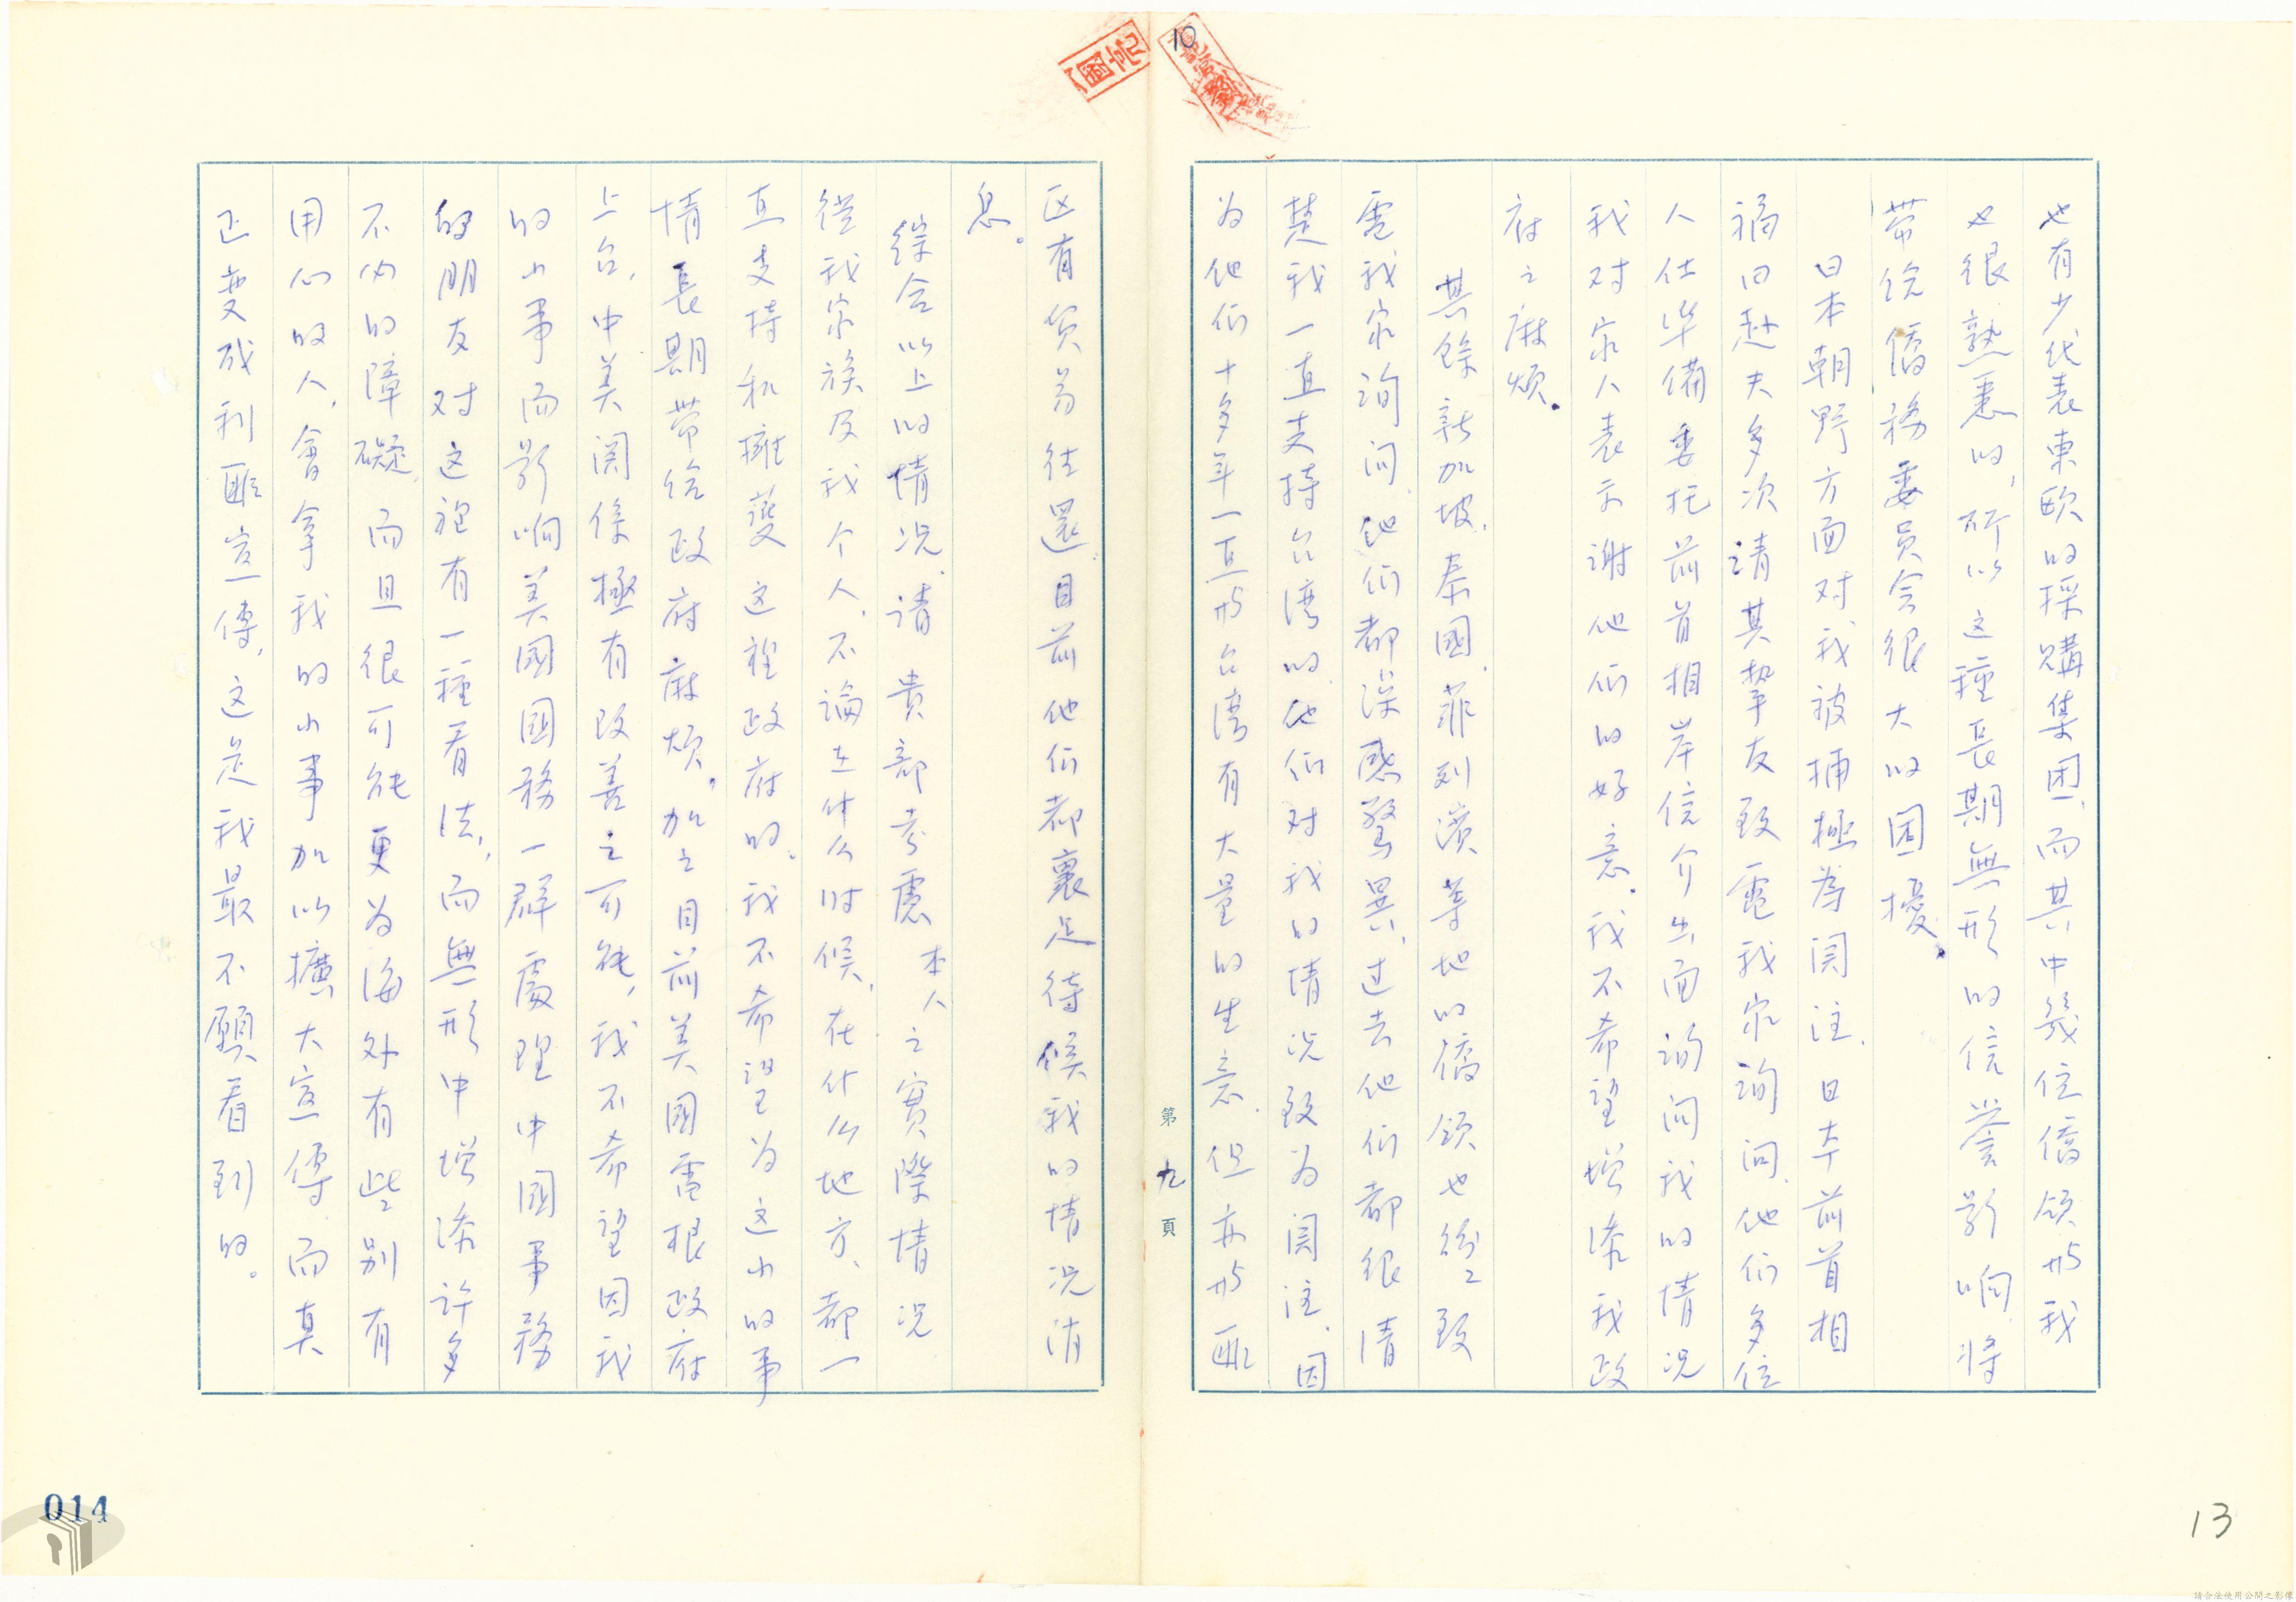 10
也有少代表東歐的採購集团,而其中幾位僑領与我
也很熟悉的,所以这種長期無形的信譽影响,将
带给僑務委員会很大的困擾。
日本朝野方面对我被捕極為関注,日本前首相
福田赳夫多次請其摯友致電我家詢问,他们多位
人仕準備委托前首相岸信介出面詢问我的情況
我对家人表示谢他们的好意。我不希望增添我政
府之麻煩。
其餘新加坡、泰國、菲列濱等地的僑領也紛々致
電我家詢问,他们都深感驚異,过去他们都很清
楚我一直支持台湾的,他们对我的情況致为関注,因
为他们十多年一直与台湾有大量的生意,但亦与匪
第九頁
区有貿易往還,目前他们都裏足待候我的情況消
息。
綜合以上的情況,请 貴部考慮 本人之實際情況
從我家族及我个人,不論在什么时候,在什么地方,都一
直支持和擁護这種政府的。我不希望已为这小的事
情長期带给政府麻煩。加之目前美國雷根政府
上台,中美関係極有改善之可能,我不希望因我
的小事而影响美國國務一群處理中國事務
的朋友对这裡有一種看法,而無形中增添許多
不必的障礙,而且很可能更为海外有些别有
用心的人,會拿我的小事加以擴大宣傳,而真
正变成利匪宣傳,这是我最不願看到的。
014
13
請合法使用公開之影像